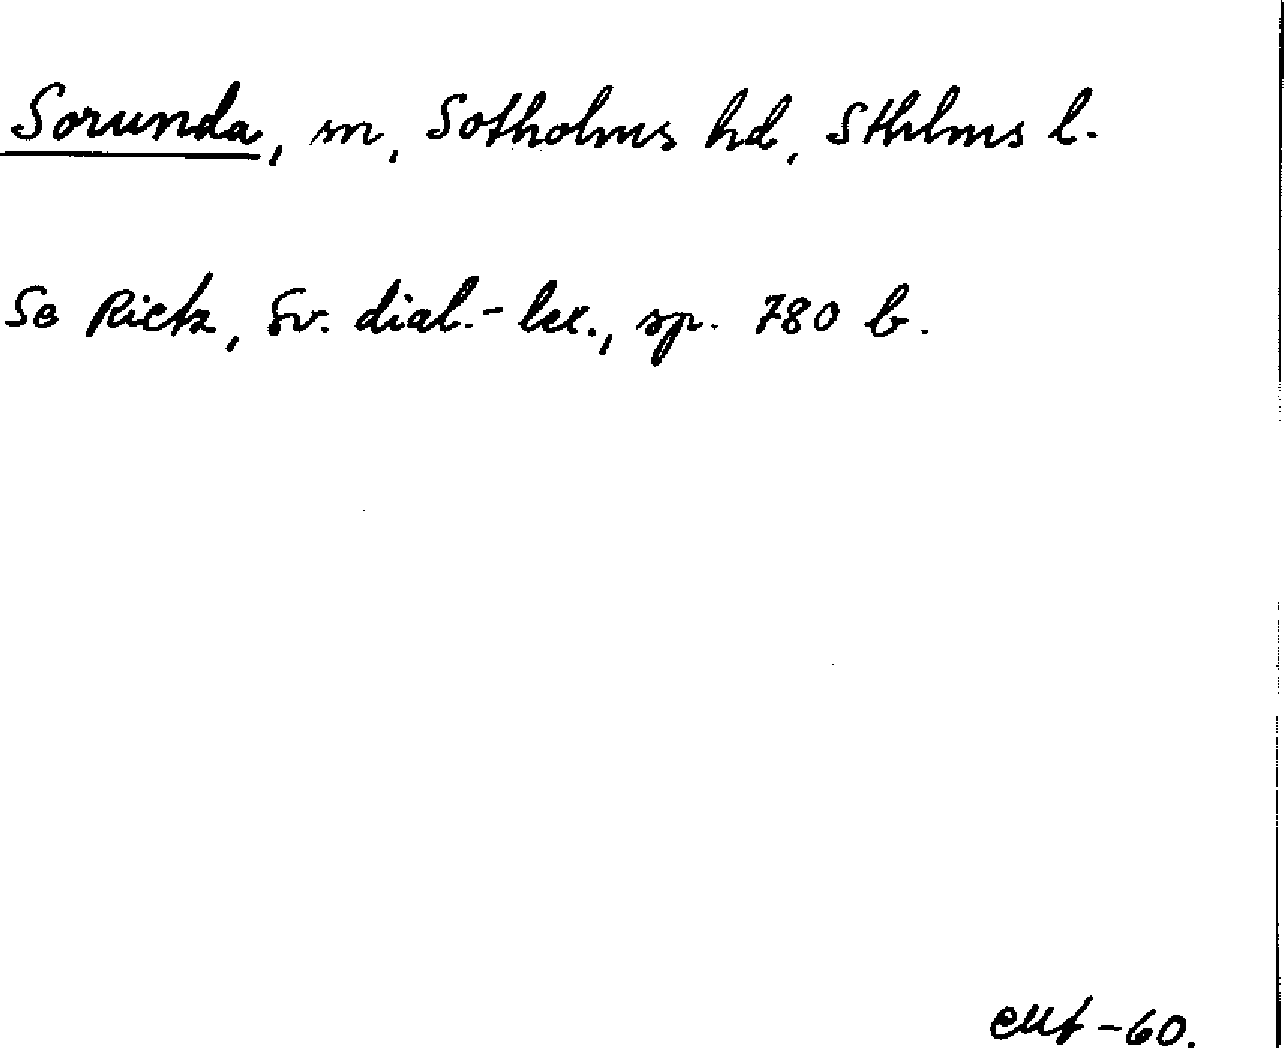 Sorunda, sn, Sotholms hd, Sthlms l.
Se Rietz, Sv. dial.-lex., sp. 780 b.
-60.